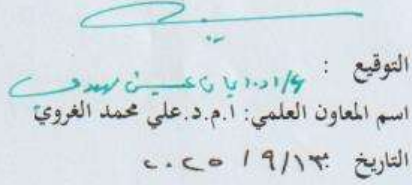 التوقيع :
ع/ا.د. ايمان حسين مهدي
اسم المعاون العلمي: ا.م.د.علي محمد الغروي
التاريخ ٢٠٢٥ / ٩ / ١٣